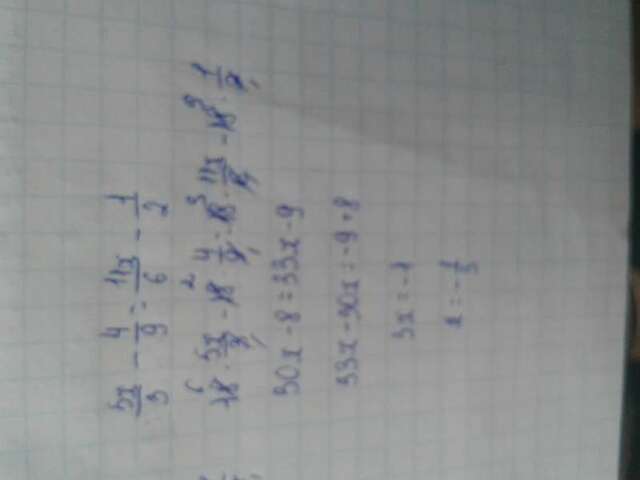 5x/3 - 4/9 = 11x/6 - 1/2
18⁶ · 5x/3₁ - 18² · 4/9₁ = 18³ · 11x/6₁ - 18⁹ · 1/2₁
30x - 8 = 33x - 9
33x - 30x = -9 + 8
3x = -1
x = -1/3